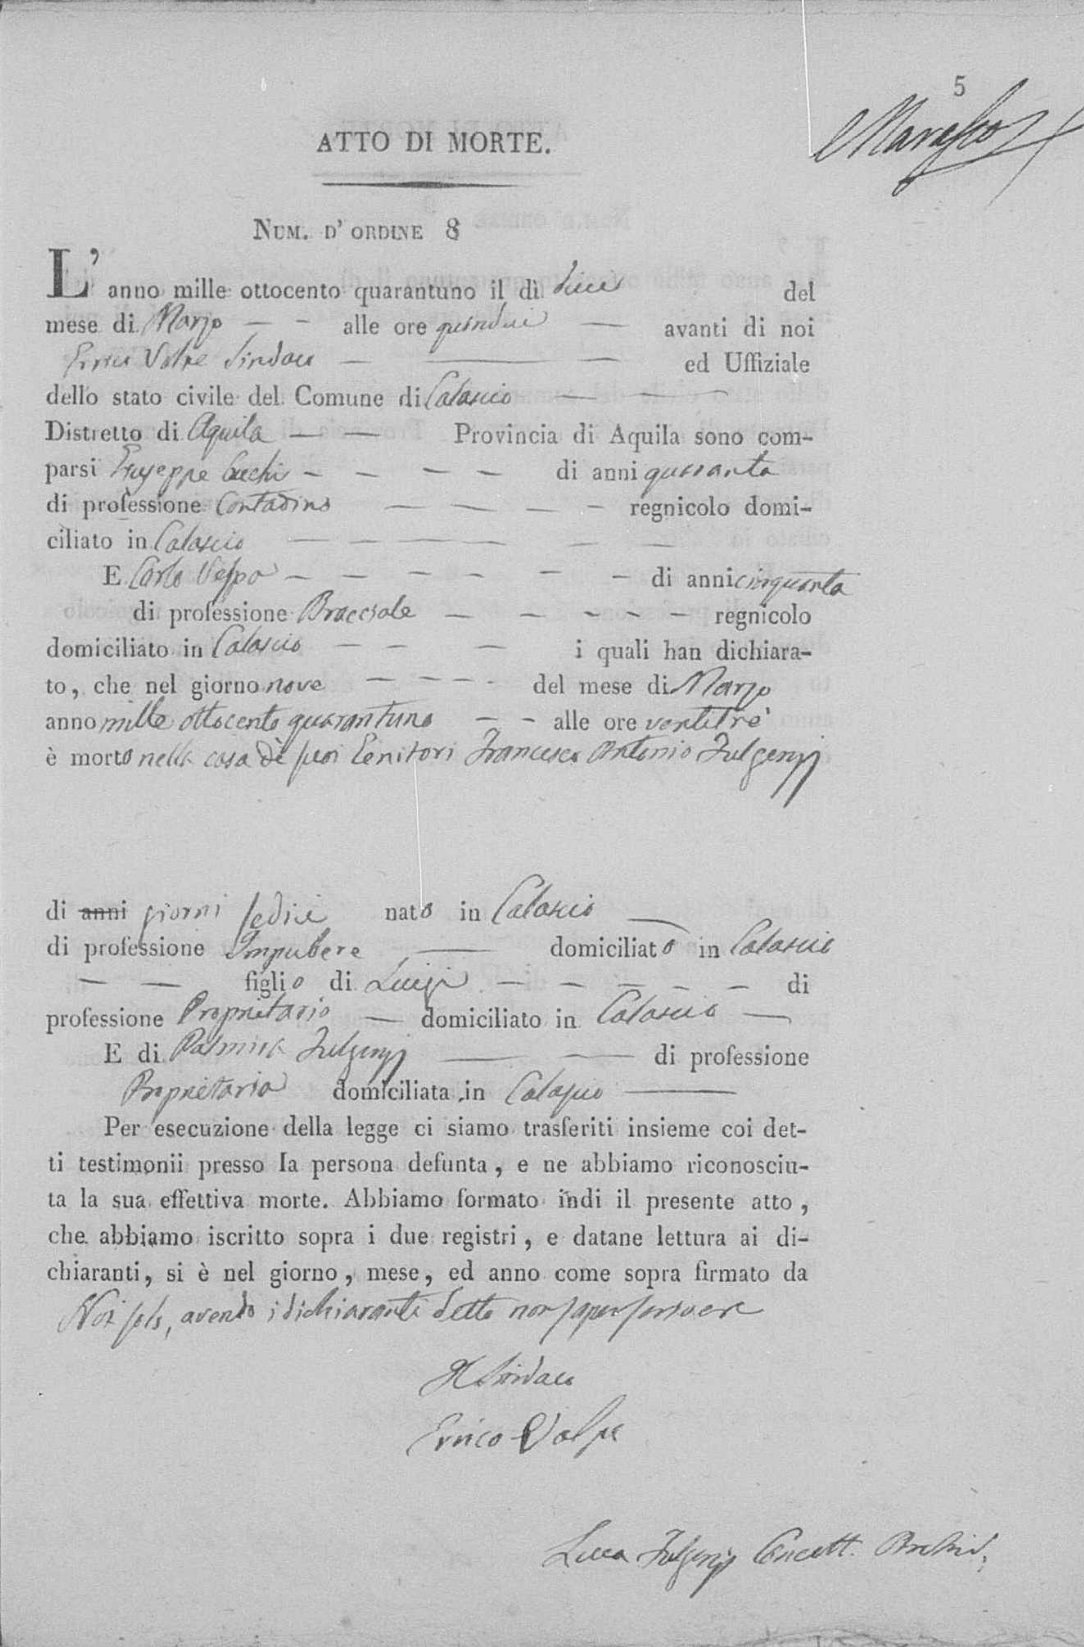 5
Marasco
ATTO DI MORTE.
NUM. D' ORDINE 8
L' anno mille ottocento quarantuno il dì dieci del
mese di Marzo — - alle ore quindici — avanti di noi
Errico Volpe Sindaco — — — ed Uffiziale
dello stato civile del Comune di Calascio — — —
Distretto di Aquila — — Provincia di Aquila sono com-
parsi Giuseppe - - — — di anni quaranta
di professione Contadino — — — - regnicolo domi-
ciliato in Calascio — — — — — — —
E Carlo Vespa — — — — — — di anni cinquanta
di professione Bracciale — — — - — regnicolo
domiciliato in Calascio — — — i quali han dichiara-
to, che nel giorno nove — — — - del mese di Marzo
anno mille ottocento quarantuno — - alle ore ventitrè
è morto nella casa de' suoi Genitori Francesco Antonio Fulgenzj
di anni giorni sedici nato in Calascio —
di professione Impubere — domiciliato in Calascio
— — figlio di Luigi — — — — — — di
professione Proprietario — domiciliato in Calascio —
E di Palmira Fulgenzj — — di professione
Proprietaria domiciliata in Calascio —
Per esecuzione della legge ci siamo trasferiti insieme coi det-
ti testimonii presso la persona defunta, e ne abbiamo riconosciu-
ta la sua effettiva morte. Abbiamo formato indi il presente atto,
che abbiamo iscritto sopra i due registri, e datane lettura ai di-
chiaranti, si è nel giorno, mese, ed anno come sopra firmato da
Noi solo, avendo i dichiaranti detto non saper scrivere
Il Sindaco
Errico Volpe
Luca Fulgenzj